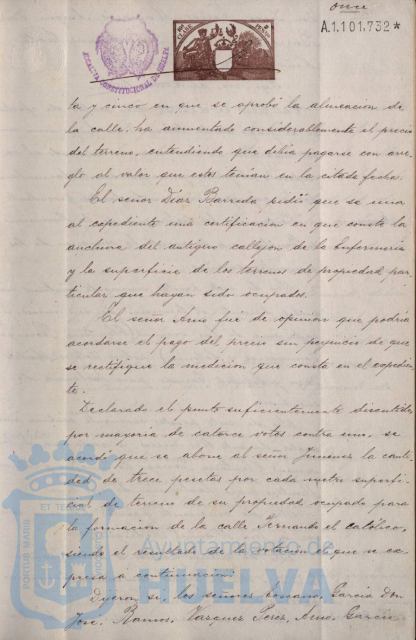 once
A.1.101.732*
ALCALDIA CONSTITUCIONAL DE HUELVA
ta y cinco en que se aprobó la alineacion de
la calle, ha aumentado considerablemente el precio
del terreno, entendiendo que debia pagarse con arre-
glo al valor que estos tenian en la citada fecha.
El señor Diaz Barreda, pidió que se una
al expediente una certificacion en que conste la
anchura del antiguo callejon de la Enfermeria
y la superficie de los terrenos de propiedad par-
ticular que hayan sido ocupados.
El señor Amo fué de opinion que podria
acordarse el pago del precio sin perjuicio de que
se rectifique la medicion que consta en el expedien-
te.
Declarado el punto suficientemente discutido,
por mayoria de catorce votos contra uno, se
acordó que se abone al señor Jimenez la canti-
dad de trece pesetas por cada metro superfi-
cial de terreno de su propiedad ocupado para
la formacion de la calle Fernando el Católico,
siendo el resultado de la votacion el que se ex-
presa a continuacion.
Dijeron, si, los señores Garcia Don
José, Ramos, Vazquez Perez, Amo, Garcia
PORTUS MARIS ET TERRAE CUSTODIA
Ayuntamiento de
HUELVA